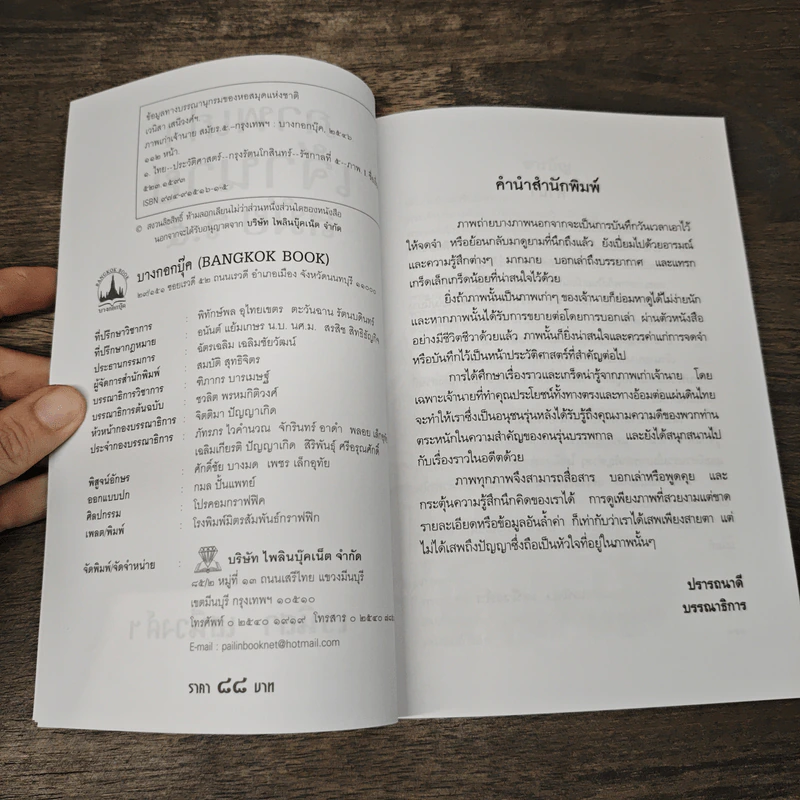 ข้อมูลทางบรรณานุกรมของหอสมุดแห่งชาติ
เวนิสา เสนีวงศ์ฯ.
ภาพเก่าเจ้านาย สมัยร.๕.--กรุงเทพฯ : บางกอกบุ๊ค, ๒๕๔๖
๑๑๒ หน้า.
๑. ไทย--ประวัติศาสตร์--กรุงรัตนโกสินทร์--รัชกาลที่ ๕--ภาพ I ชื่อเรื่อง
๙๕๙.๓
ISBN ๙๗๔-๙๑๕๑๖-๑-๕
© สงวนลิขสิทธิ์ ห้ามลอกเลียนไม่ว่าส่วนหนึ่งส่วนใดของหนังสือ
นอกจากจะได้รับอนุญาตจาก บริษัท ไพลินบุ๊คเน็ต จำกัด
BANGKOK BOOK
บางกอกบุ๊ค
บางกอกบุ๊ค (BANGKOK BOOK)
๒๙/๑๕๑ ซอยเรวดี ๕๒ ถนนเรวดี อำเภอเมือง จังหวัดนนทบุรี ๑๑๐๐๐
ที่ปรึกษาวิชาการ : พิทักษ์พล อุไทยเขตร ตะวันฉาน รัตนบดินทร์
ที่ปรึกษากฎหมาย : อนันต์ แย้มเกษร น.บ. นศ.ม. สรสิช สิทธิธัญกิจ
ประธานกรรมการ : ฉัตรเฉลิม เฉลิมชัยวัฒน์
ผู้จัดการสำนักพิมพ์ : สมบัติ สุทธิจิตร
บรรณาธิการวิชาการ : ฑิภากร บารเมษฐ์
บรรณาธิการต้นฉบับ : ชวลิต พรหมกิติวงศ์
หัวหน้ากองบรรณาธิการ : จิตติมา ปัญญาเกิด
ประจำกองบรรณาธิการ : ภัทรภร ไวคำนวณ จักรินทร์ อาดำ พลอย เล็กอุทัย
เฉลิมเกียรติ ปัญญาเกิด สิริพันธุ์ ศรีอรุณศักดิ์
พิสูจน์อักษร : ศักดิ์ชัย บางมด เพชร เล็กอุทัย
ออกแบบปก : กมล ปั้นแพทย์
ศิลปกรรม : โปรคอมกราฟฟิค
เพลต/พิมพ์ : โรงพิมพ์มิตรสัมพันธ์กราฟฟิก
จัดพิมพ์/จัดจำหน่าย : บริษัท ไพลินบุ๊คเน็ต จำกัด
๘๕/๒ หมู่ที่ ๑๓ ถนนเสรีไทย แขวงมีนบุรี
เขตมีนบุรี กรุงเทพฯ ๑๐๕๑๐
โทรศัพท์ ๐ ๒๕๔๐ ๑๙๑๙ โทรสาร ๐ ๒๕๔๐
E-mail : pailinbooknet@hotmail.com
ราคา ๘๘ บาท
คำนำสำนักพิมพ์
ภาพถ่ายบางภาพนอกจากจะเป็นการบันทึกวันเวลาเอาไว้
ให้จดจำ หรือย้อนกลับมาดูยามที่นึกถึงแล้ว ยังเปี่ยมไปด้วยอารมณ์
และความรู้สึกต่างๆ มากมาย บอกเล่าถึงบรรยากาศ และแทรก
เกร็ดเล็กเกร็ดน้อยที่น่าสนใจไว้ด้วย
ยิ่งถ้าภาพนั้นเป็นภาพเก่าๆ ของเจ้านายก็ย่อมหาดูได้ไม่ง่ายนัก
และหากภาพนั้นได้รับการขยายต่อโดยการบอกเล่า ผ่านตัวหนังสือ
อย่างมีชีวิตชีวาด้วยแล้ว ภาพนั้นก็ยิ่งน่าสนใจและควรค่าแก่การจดจำ
หรือบันทึกไว้เป็นหน้าประวัติศาสตร์ที่สำคัญต่อไป
การได้ศึกษาเรื่องราวและเกร็ดน่ารู้จากภาพเก่าเจ้านาย โดย
เฉพาะเจ้านายที่ทำคุณประโยชน์ทั้งทางตรงและทางอ้อมต่อแผ่นดินไทย
จะทำให้เราซึ่งเป็นอนุชนรุ่นหลังได้รับรู้ถึงคุณงามความดีของพวกท่าน
ตระหนักในความสำคัญของคนรุ่นบรรพกาล และยังได้สนุกสนานไป
กับเรื่องราวในอดีตด้วย
ภาพทุกภาพจึงสามารถสื่อสาร บอกเล่าหรือพูดคุย และ
กระตุ้นความรู้สึกนึกคิดของเราได้ การดูเพียงภาพที่สวยงามแต่ขาด
รายละเอียดหรือข้อมูลอันล้ำค่า ก็เท่ากับว่าเราได้เสพเพียงสายตา แต่
ไม่ได้เสพถึงปัญญาซึ่งถือเป็นหัวใจที่อยู่ในภาพนั้นๆ
ปรารถนาดี
บรรณาธิการ